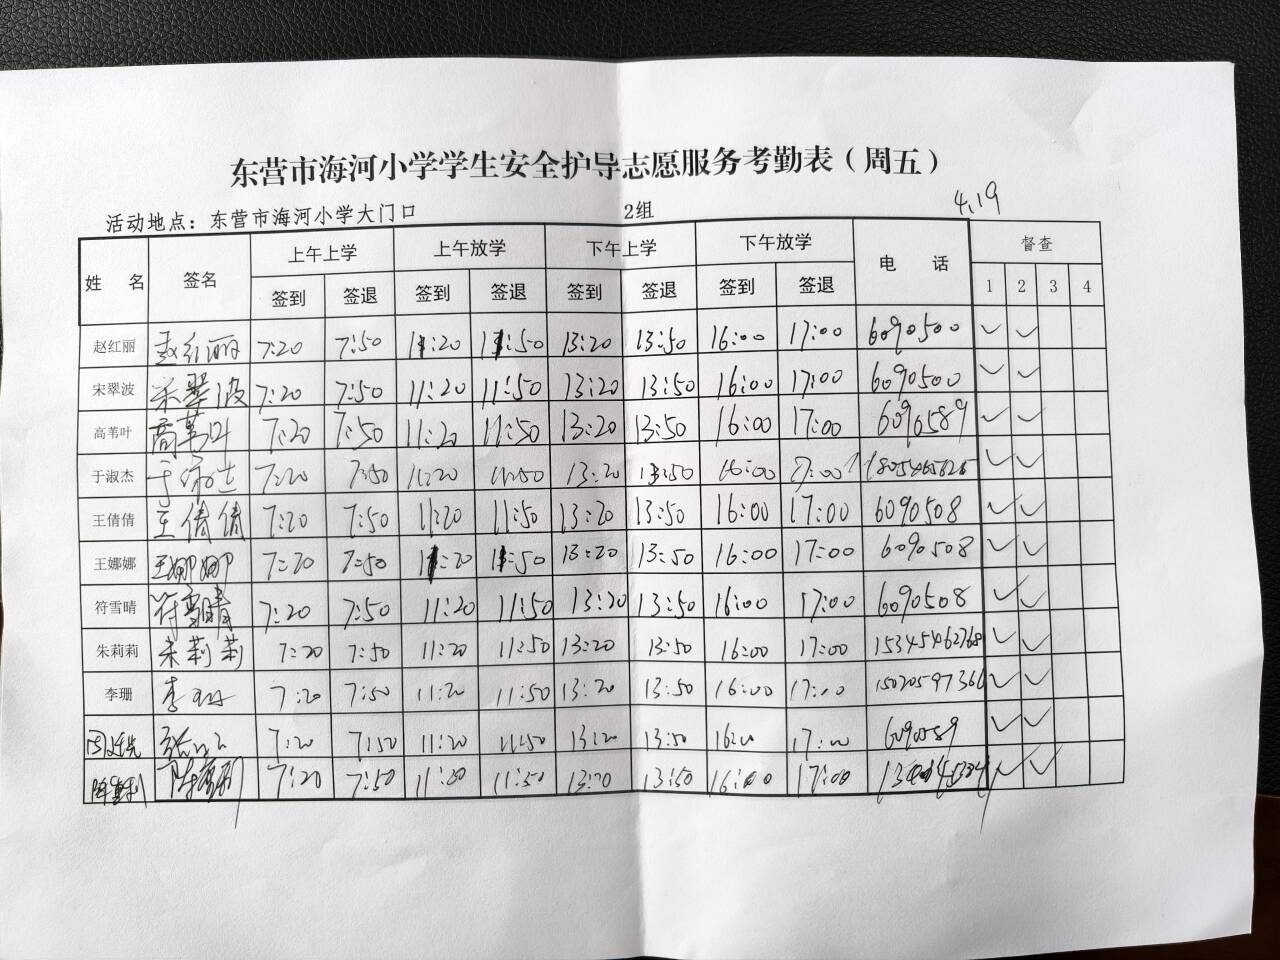 东营市海河小学学生安全护导志愿服务考勤表（周五）
4.19
活动地点：东营市海河小学大门口 2组
姓 名 签名 上午上学 上午放学 下午上学 下午放学 电 话 督查
签到 签退 签到 签退 签到 签退 签到 签退 1 2 3 4
赵红丽 赵红丽 7:20 7:50 11:20 11:50 13:20 13:50 16:00 17:00 6090500 ✓ ✓
宋翠波 宋翠波 7:20 7:50 11:20 11:50 13:20 13:50 16:00 17:00 6090500 ✓ ✓
高苇叶 高苇叶 7:20 7:50 11:20 11:50 13:20 13:50 16:00 17:00 6090589 ✓ ✓
于淑杰 于淑杰 7:20 7:50 11:20 11:50 13:20 13:50 16:00 17:00 ✓ ✓
王倩倩 王倩倩 7:20 7:50 11:20 11:50 13:20 13:50 16:00 17:00 6090508 ✓ ✓
王娜娜 王娜娜 7:20 7:50 11:20 11:50 13:20 13:50 16:00 17:00 6090508 ✓ ✓
符雪晴 符雪晴 7:20 7:50 11:20 11:50 13:20 13:50 16:00 17:00 6090508 ✓ ✓
朱莉莉 朱莉莉 7:20 7:50 11:20 11:50 13:20 13:50 16:00 17:00 15345462768 ✓ ✓
李珊 李珊 7:20 7:50 11:20 11:50 13:20 13:50 16:00 17:00 15020597366 ✓ ✓
7:20 7:50 11:20 11:50 13:20 13:50 16:00 17:00 6090589 ✓ ✓
7:20 7:50 11:20 11:50 13:20 13:50 16:00 17:00 ✓ ✓